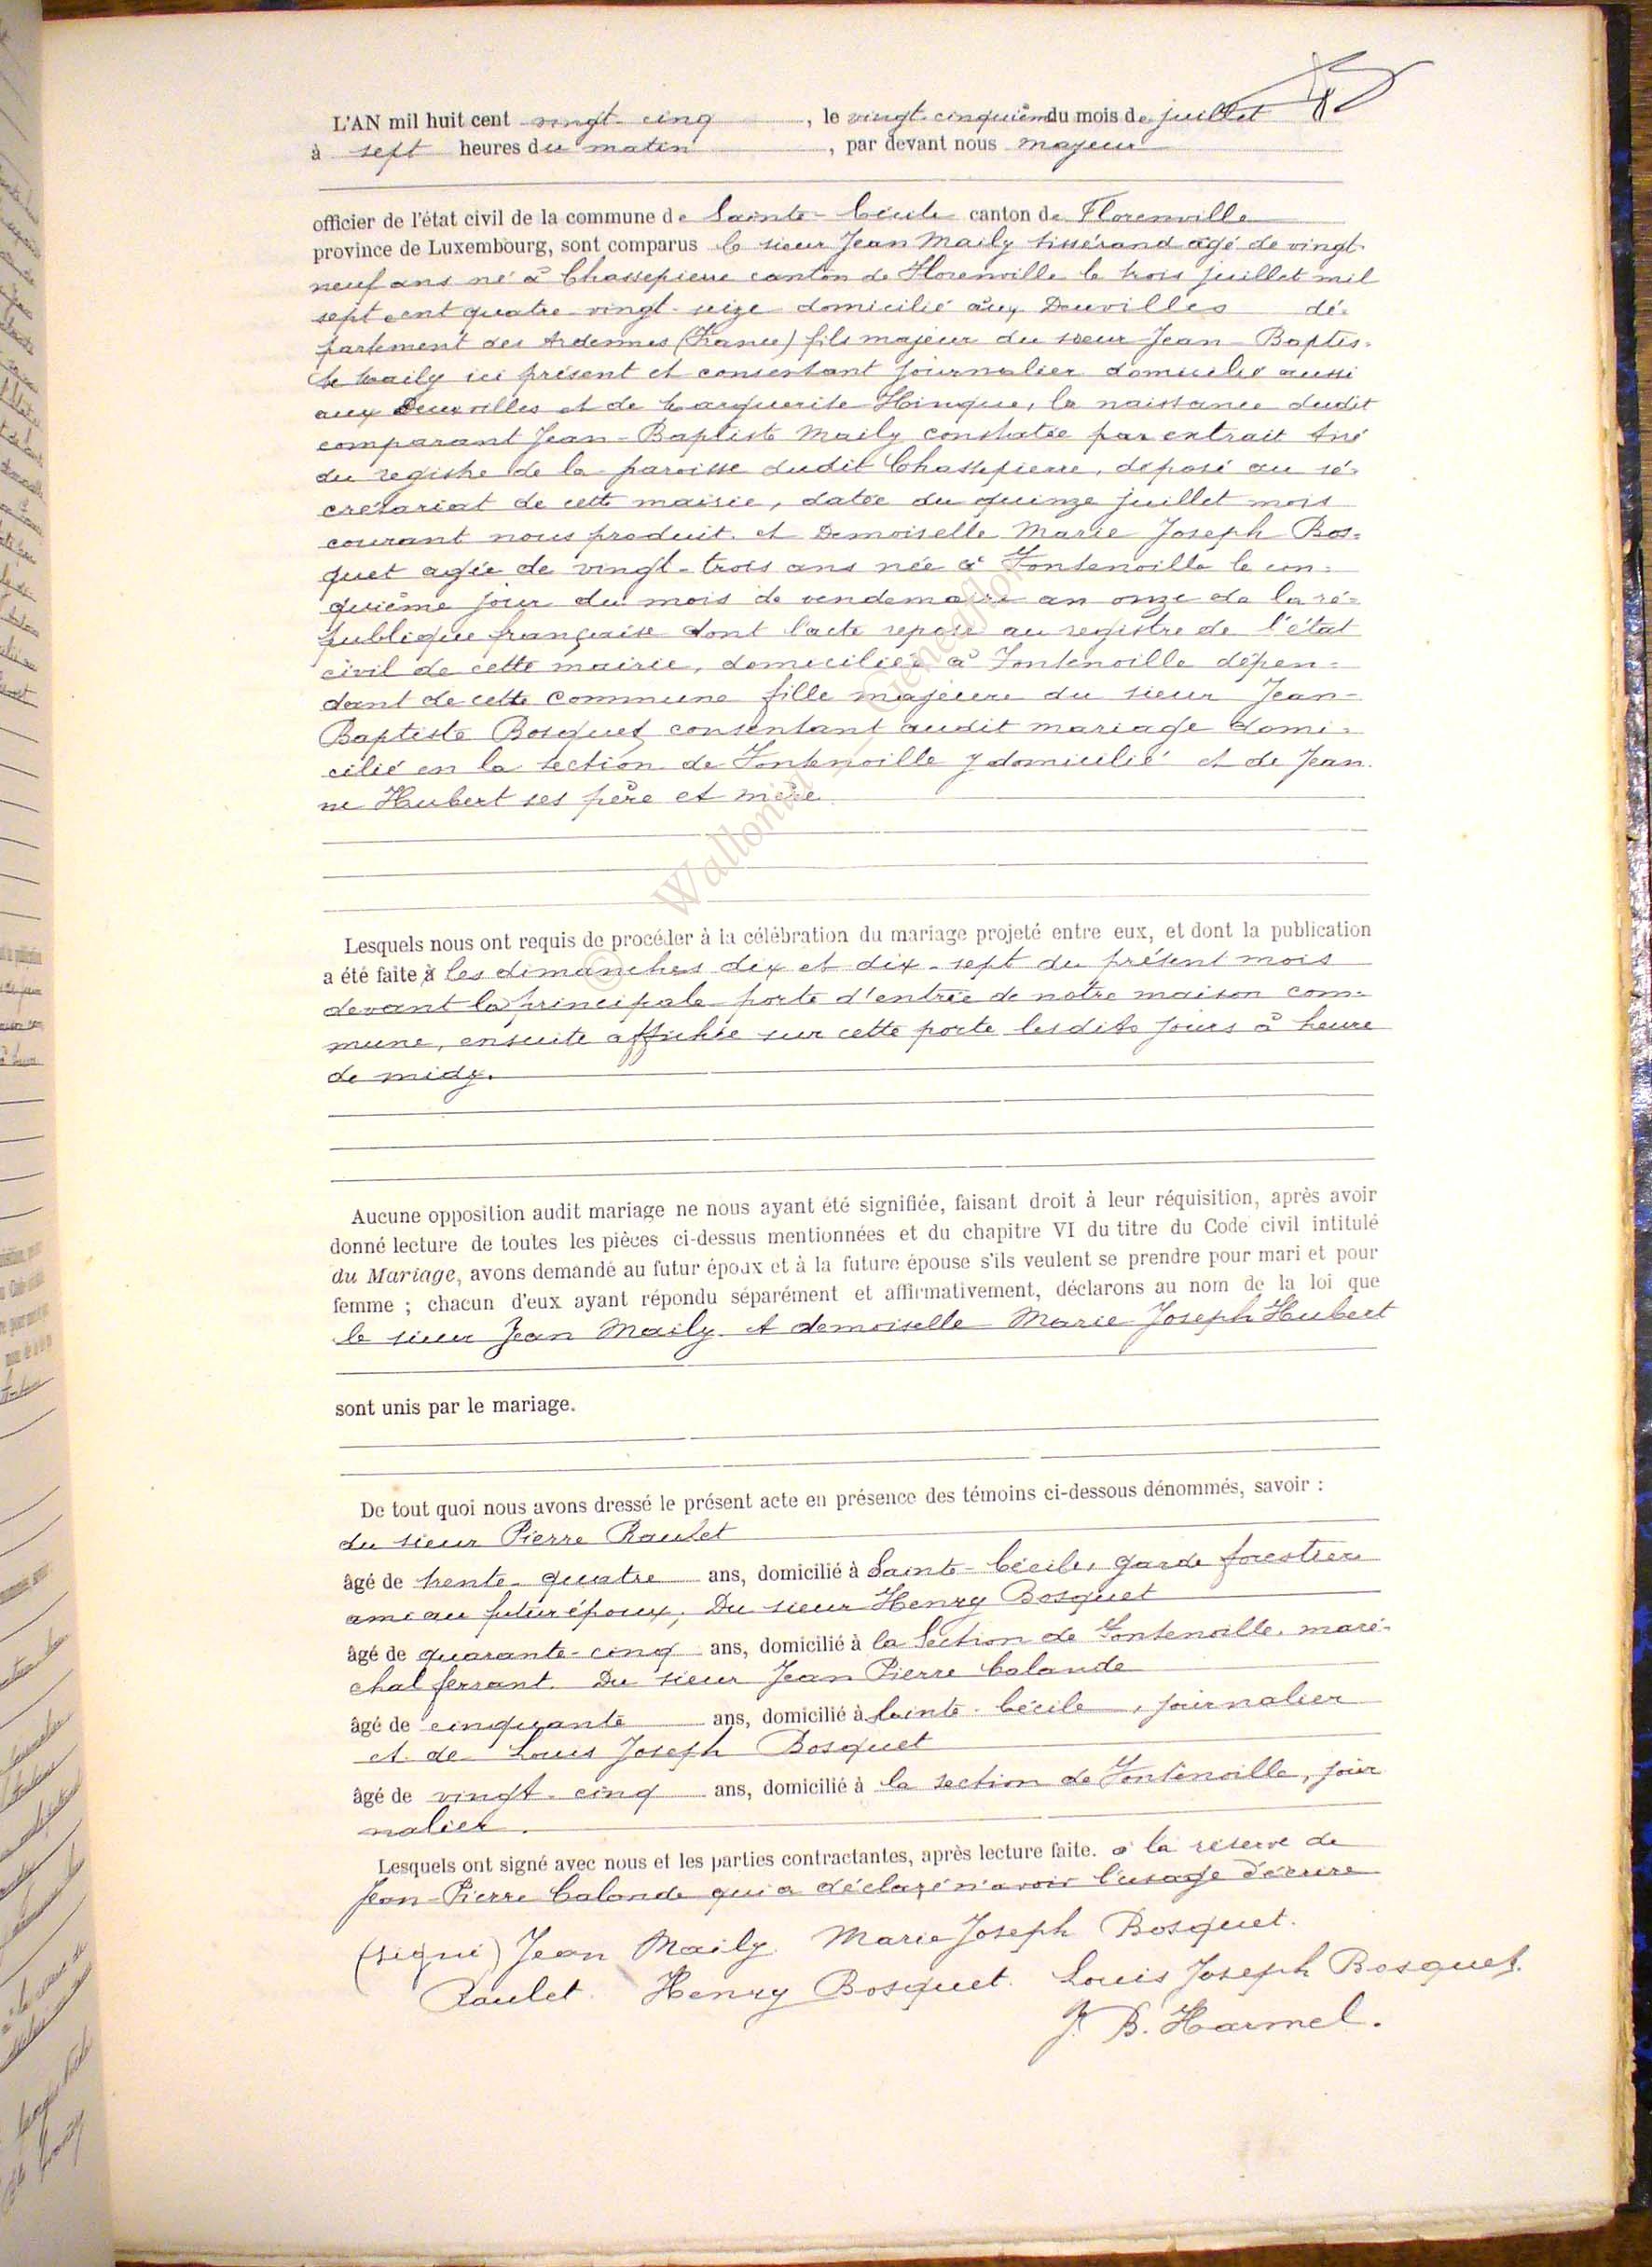 L'AN mil huit cent vingt-cinq, le vingt-cinquième du mois de juillet
à sept heures du matin, par devant nous majeur
officier de l'état civil de la commune de Sainte-Cécile canton de Florenville
province de Luxembourg, sont comparus le sieur Jean Maily tissérand agé de vingt-
neuf ans né à Chassepierre canton de Florenville le trois juillet mil
sept cent quatre-vingt-seize domicilié aux Deuvilles dé-
partement des Ardennes (France) fils majeur du sieur Jean-Baptis-
te Maily ici présent et consentant journalier domicilié aussi
aux Deuxvilles et de Marguerite Hinque, la naissance dudit
comparant Jean-Baptiste Maily constatée par extrait tiré
du registre de la paroisse dudit Chassepierre, déposé au sé-
crétariat de cette mairie, datée du quinze juillet mois
courant nous produit. et Demoiselle Marie Joseph Bos-
quet agée de vingt-trois ans née à Fontenoille le cin-
quième jour du mois de vendemaire an onze de la ré-
publique française dont l'acte repose au registre de l'état
civil de cette mairie, domiciliée à Fontenoille dépen-
dant de cette commune fille majeure du sieur Jean-
Baptiste Bosquet consentant audit mariage domi-
cilié en la section de Fontenoille y domicilié et de Jean-
ne Hubert ses père et mère
© Wallonia
Lesquels nous ont requis de procéder à la célébration du mariage projeté entre eux, et dont la publication
a été faite à les dimanches dix et dix-sept du présent mois
devant la principale porte d'entrée de notre maison com-
mune, ensuite affichée sur cette porte lesdits jours à heure
de midy.
Aucune opposition audit mariage ne nous ayant été signifiée, faisant droit à leur réquisition, après avoir
donné lecture de toutes les pièces ci-dessus mentionnées et du chapitre VI du titre du Code civil intitulé
du Mariage, avons demandé au futur époux et à la future épouse s'ils veulent se prendre pour mari et pour
femme ; chacun d'eux ayant répondu séparément et affirmativement, déclarons au nom de la loi que
le sieur Jean Maily et demoiselle Marie Joseph Hubert
sont unis par le mariage.
De tout quoi nous avons dressé le présent acte en présence des témoins ci-dessous dénommés, savoir :
du sieur Pierre Raulet
âgé de trente-quatre ans, domicilié à Sainte-Cécile, garde forestier
ami au futur époux, Du sieur Henry Bosquet
âgé de quarante-cinq ans, domicilié à la Section de Fontenoille, maré-
chal ferrant. Du sieur Jean Pierre Calande
âgé de cinquante ans, domicilié à Sainte-Cécile, journalier
et de Louis Joseph Bosquet
âgé de vingt-cinq ans, domicilié à la section de Fontenoille, jour
nalier.
Lesquels ont signé avec nous et les parties contractantes, après lecture faite. à la réserve de
Jean-Pierre Calande qui a déclaré n'avoir l'usage d'écrire
(signé) Jean Maily. Marie Joseph Bosquet.
Raulet. Henry Bosquet. Louis Joseph Bosquet.
J. B. Harmel.